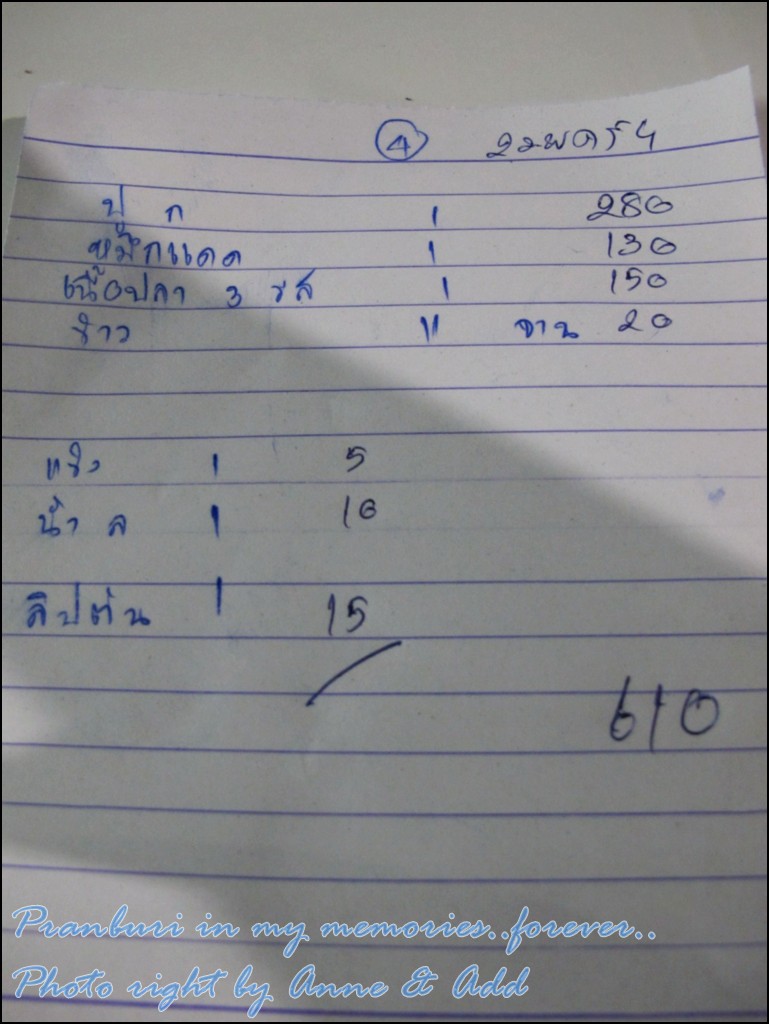 ④
ปู ก ı 280
หมึกแดด ı 130
เนื้อปลา 3 รส ı 150
ข้าว ıı จาน 20
แข็ง ı 5
น้ำ ล ı 10
ลิปตัน ı 15
610
Pranburi in my memories..forever..
Photo right by Anne & Add